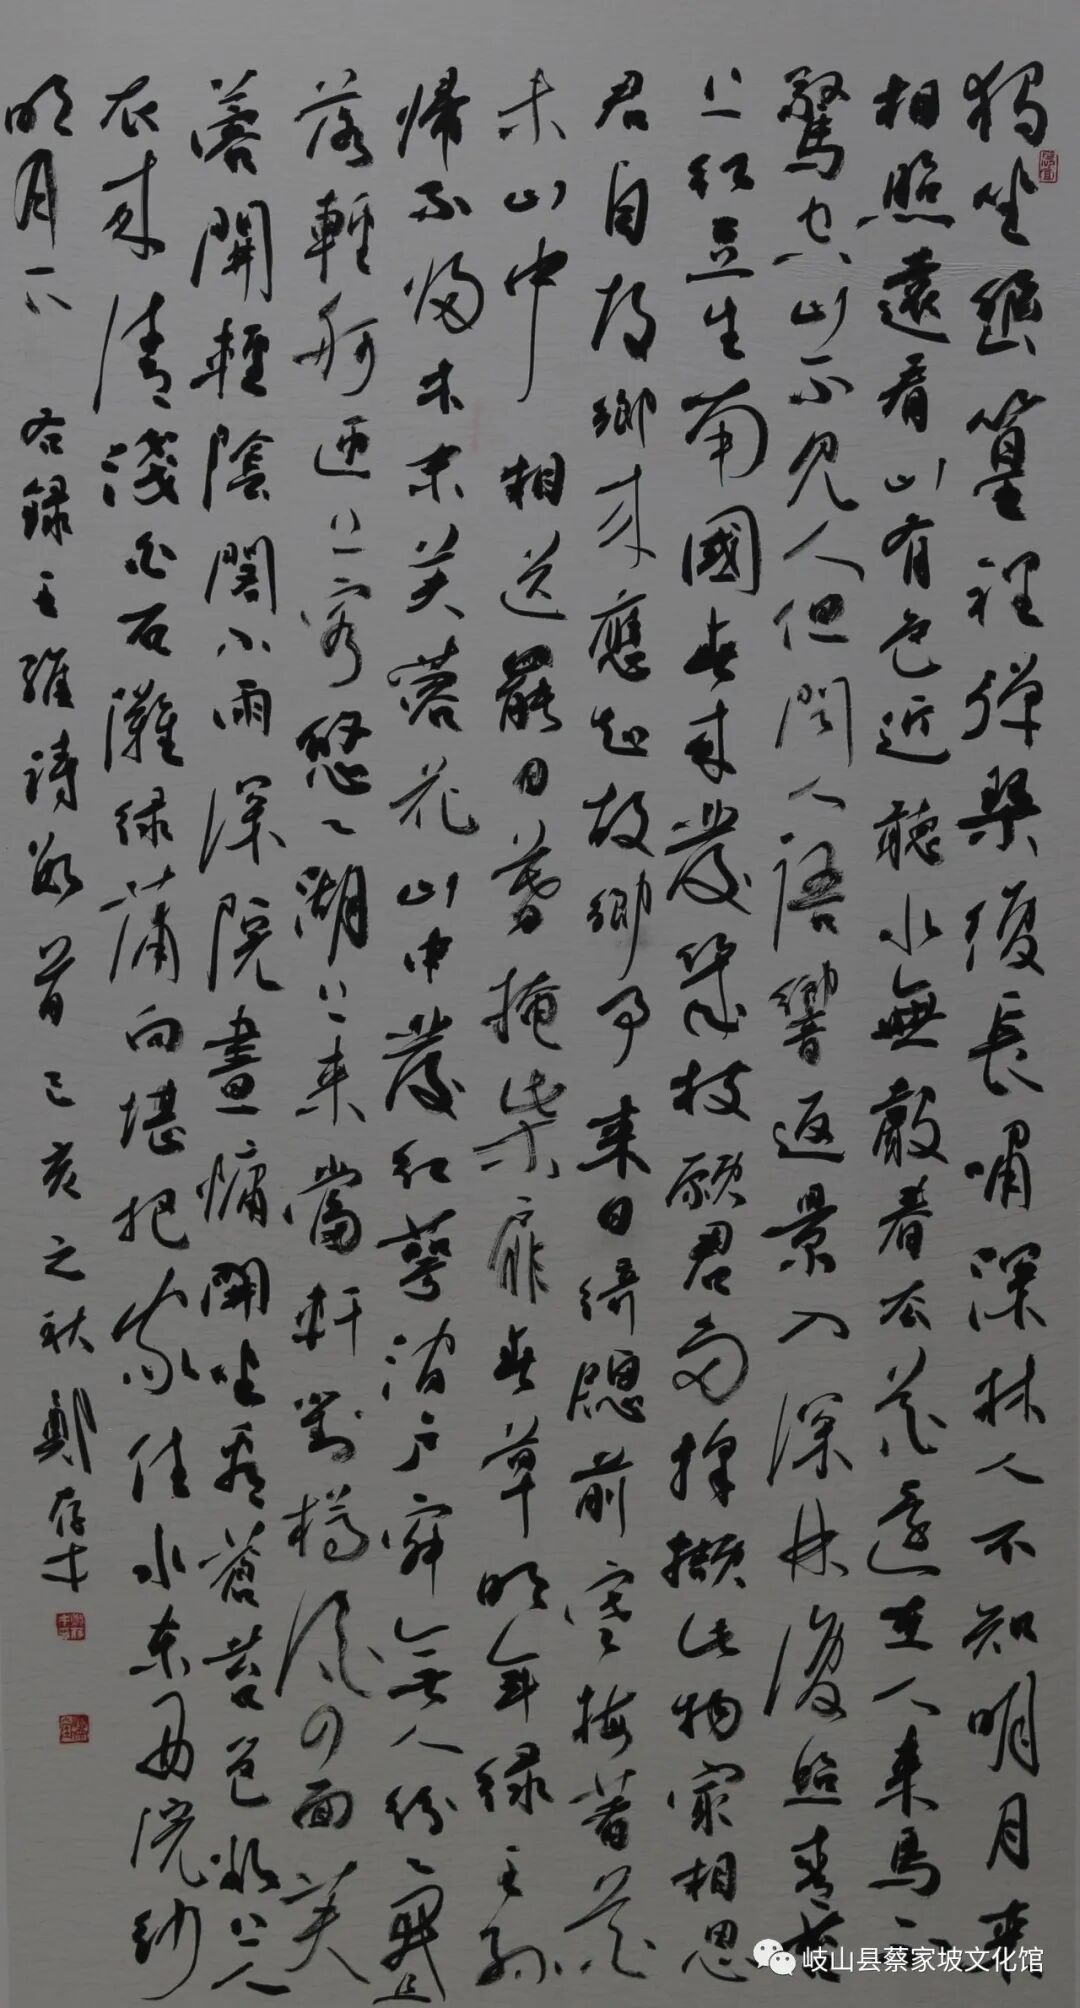 獨坐幽篁裡彈琴復長嘯深林人不知明月来
相照遠看山有色近聽水無聲春去花還在人来鳥不
驚空山不見人但聞人語響返景入深林復照青苔
上紅豆生南國春來發幾枝願君多採擷此物最相思
君自故鄉来應知故鄉事来日綺窗前寒梅著花
未山中相送罷日暮掩柴扉春草明年綠王孫
歸不歸木末芙蓉花山中發紅萼澗戶寂無人紛紛開且
落輕舸迎上客悠悠湖上来當軒對樽酒四面芙
蓉開輕陰閣小雨深院晝慵開坐看蒼苔色欲上人
衣來清淺白石灘綠蒲向堪把家住水東西浣紗
明月下 右録王維詩数首己亥之秋鄭存才
岐山县蔡家坡文化馆